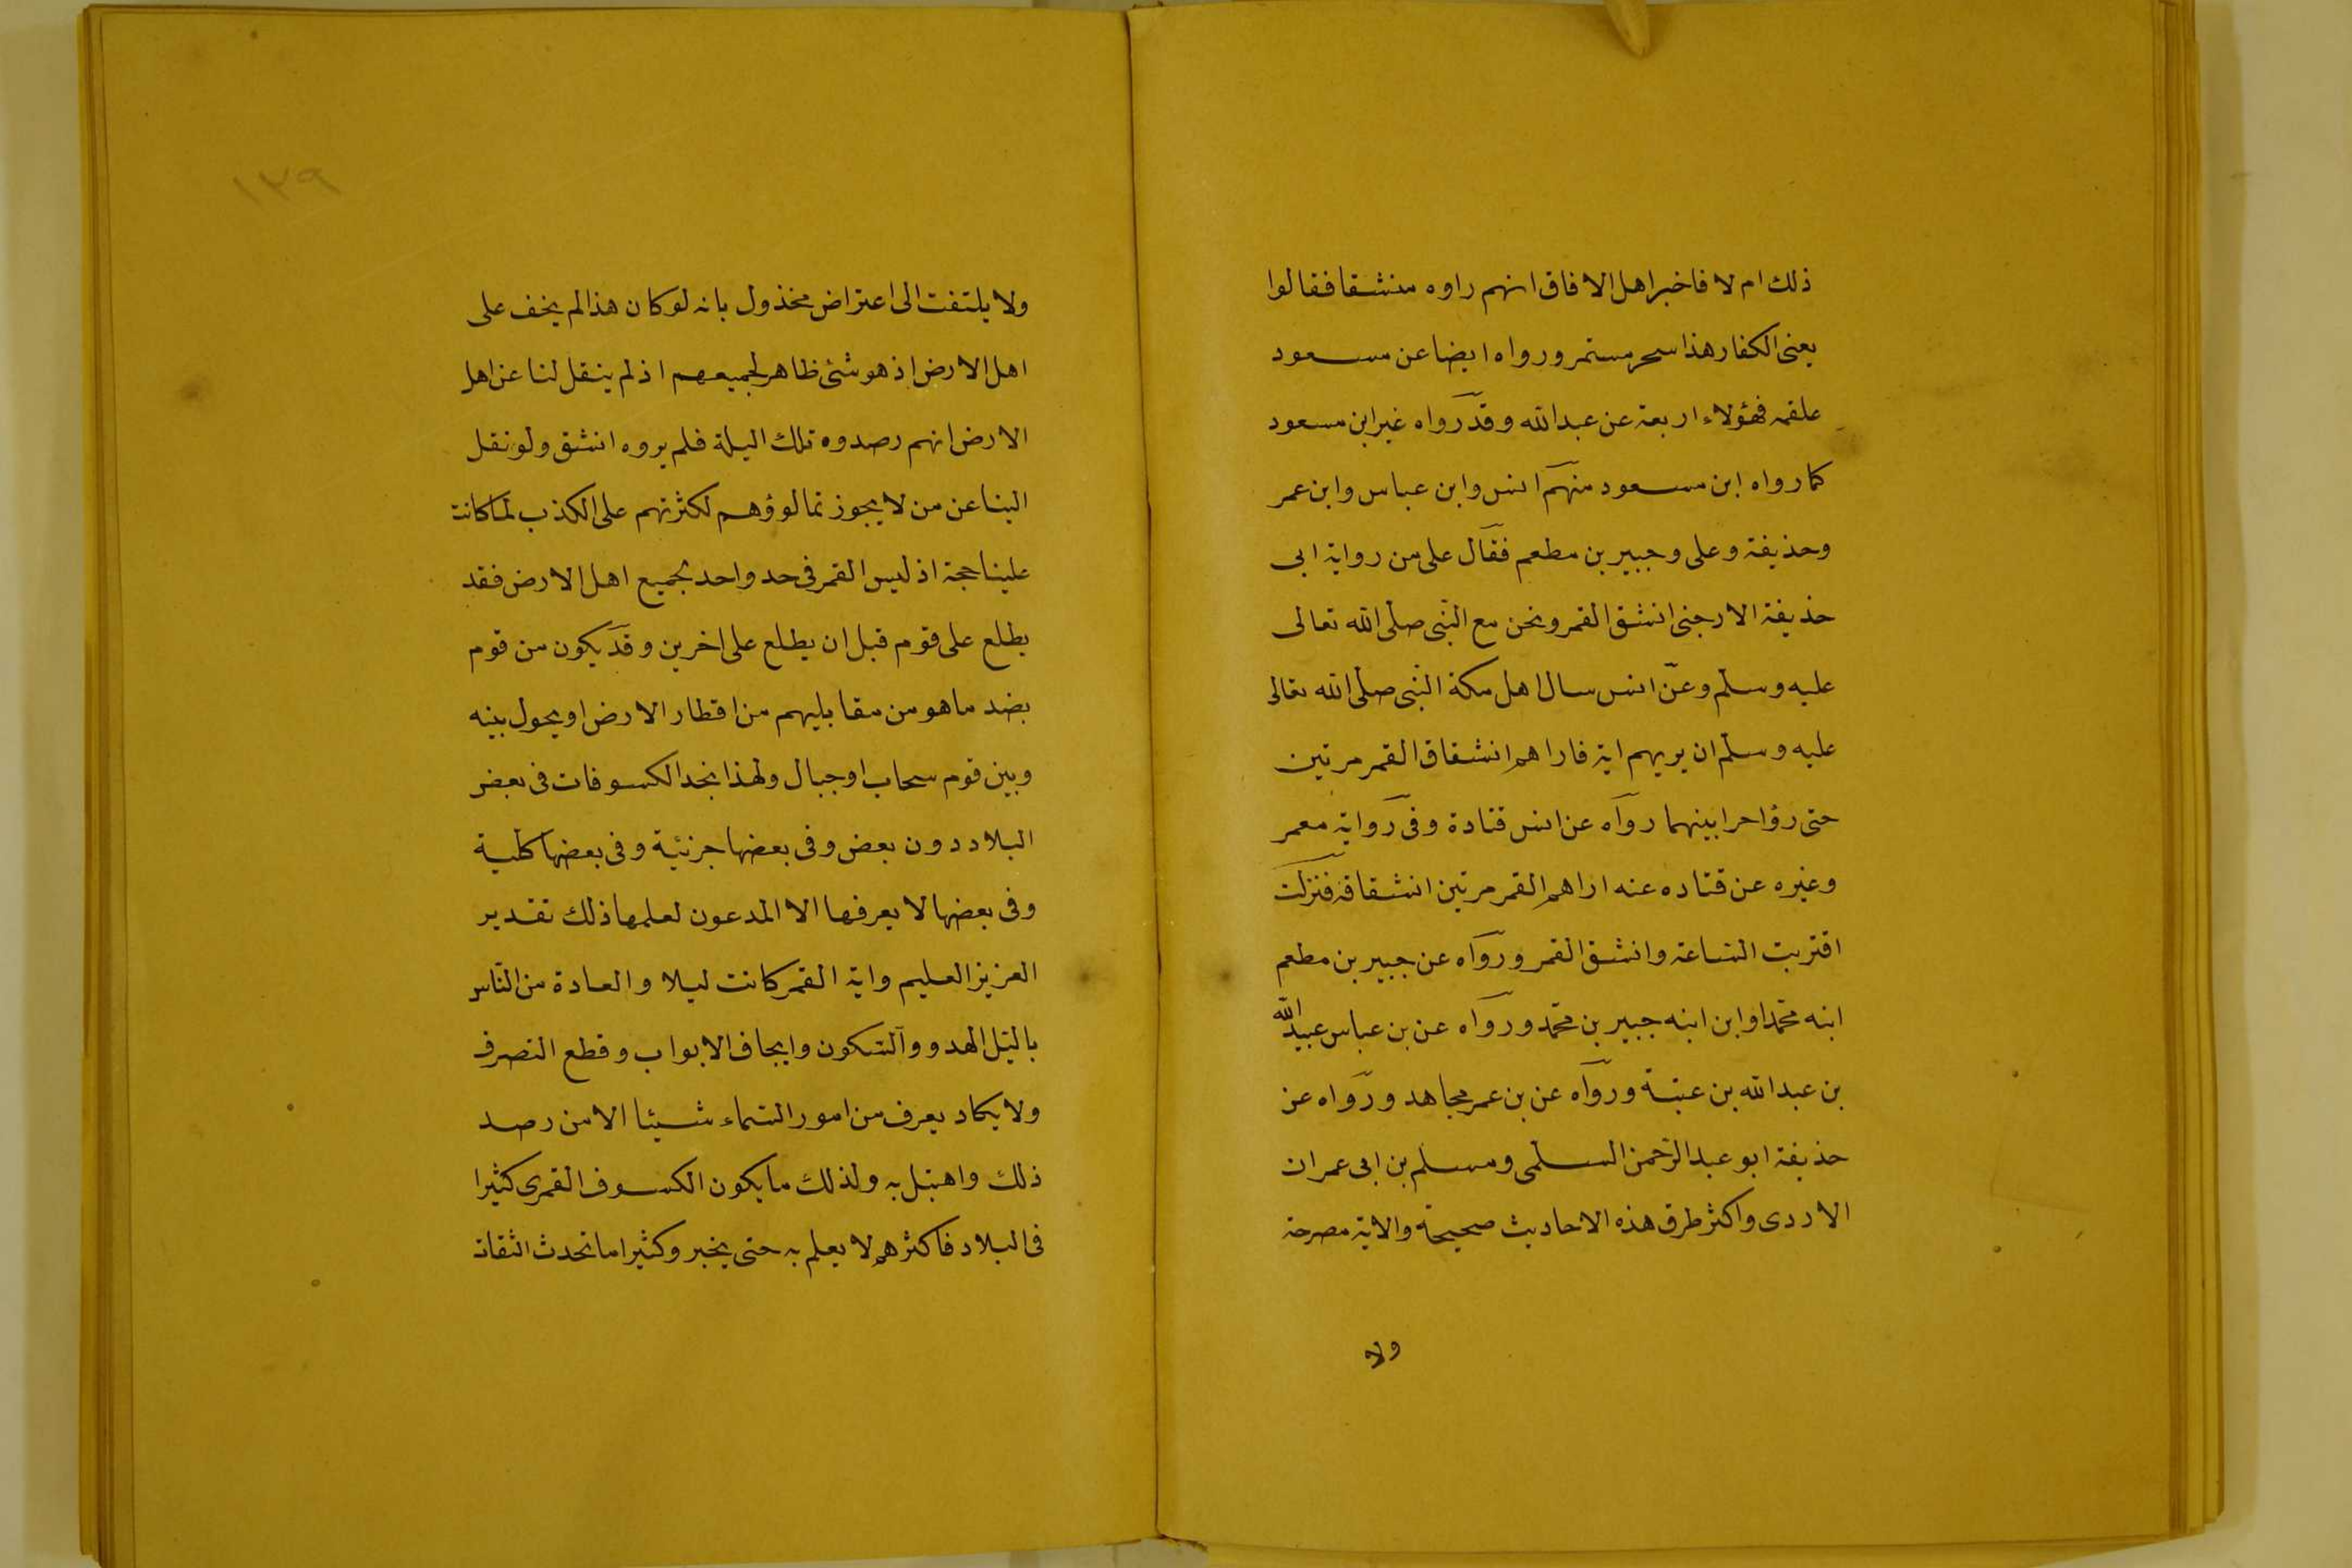 ذلك ام لا فاخبر اهل الافاق انهم راوه منشقا فقالوا
يعنى الكفار هذا سحر مستمر ورواه ايضا عن مسعود
علقمه فهؤلاء اربعة عن عبدالله وقد رواه غير ابن مسعود
كما رواه ابن مسعود منهم انس وابن عباس وابن عمر
وحذيفة وعلى وجبير بن مطعم فقال على من رواية ابى
حذيفة الارجنى انشق القمر ونحن مع النبى صلى الله تعالى
عليه وسلم وعن انس سال اهل مكة النبى صلى الله تعالى
عليه وسلم ان يريهم اية فاراهم انشقاق القمر مرتين
حتى رؤا حرا بينهما رواه عن انس قتادة وفى رواية معمر
وغيره عن قتاده عنه اراهم القمر مرتين انشقاقه فنزلت
اقتربت الساعة وانشق القمر ورواه عن جبير بن مطعم
ابنه محمد او ابن ابنه جبير بن محمد ورواه عن بن عباس عبيد الله
بن عبدالله بن عتبة ورواه عن بن عمر مجاهد ورواه عن
حذيفة ابو عبد الرحمن السلمى ومسلم بن ابى عمران
الازدى واكثر طرق هذه الاحاديث صحيحة والاية مصرحة
ولا
١٣٩
ولا يلتفت الى اعتراض مخذول بانه لو كان هذا لم يخف على
اهل الارض اذ هو شئ ظاهر لجميعهم اذ لم ينقل لنا عن اهل
الارض انهم رصدوه تلك اليلة فلم يروه انشق ولو نقل
الينا عن من لا يجوز تمالوؤهم لكثرتهم على الكذب لما كانت
علينا حجة اذ ليس القمر فى حد واحد لجميع اهل الارض فقد
يطلع على قوم قبل ان يطلع على اخرين وقد يكون من قوم
بضد ما هو من مقابليهم من اقطار الارض او يحول بينه
وبين قوم سحاب او جبال ولهذا نجد الكسوفات فى بعض
البلاد دون بعض وفى بعضها جزئية وفى بعضها كلية
وفى بعضها لا يعرفها الا المدعون لعلمها ذلك تقدير
العزيز العليم واية القمر كانت ليلا والعادة من الناس
بالليل الهدو والسكون وايجاف الابواب وقطع التصرف
ولا يكاد يعرف من امور السماء شيئا الا من رصد
ذلك واهتبل به ولذلك ما يكون الكسوف القمرى كثيرا
فى البلاد فاكثرهم لا يعلم به حتى يخبر وكثيرا ما تحدث الثقات